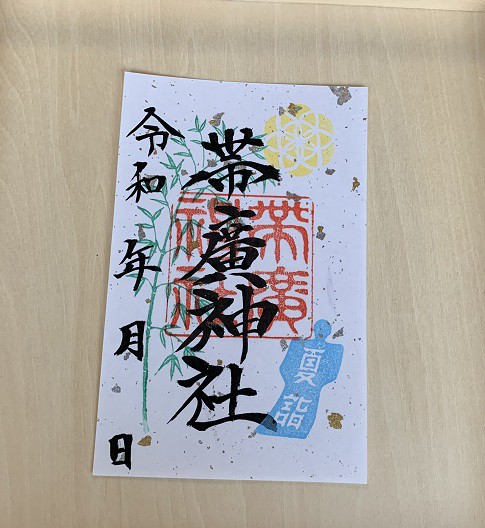 帯廣神社
令和 年 月 日
帯廣
神社
夏詣